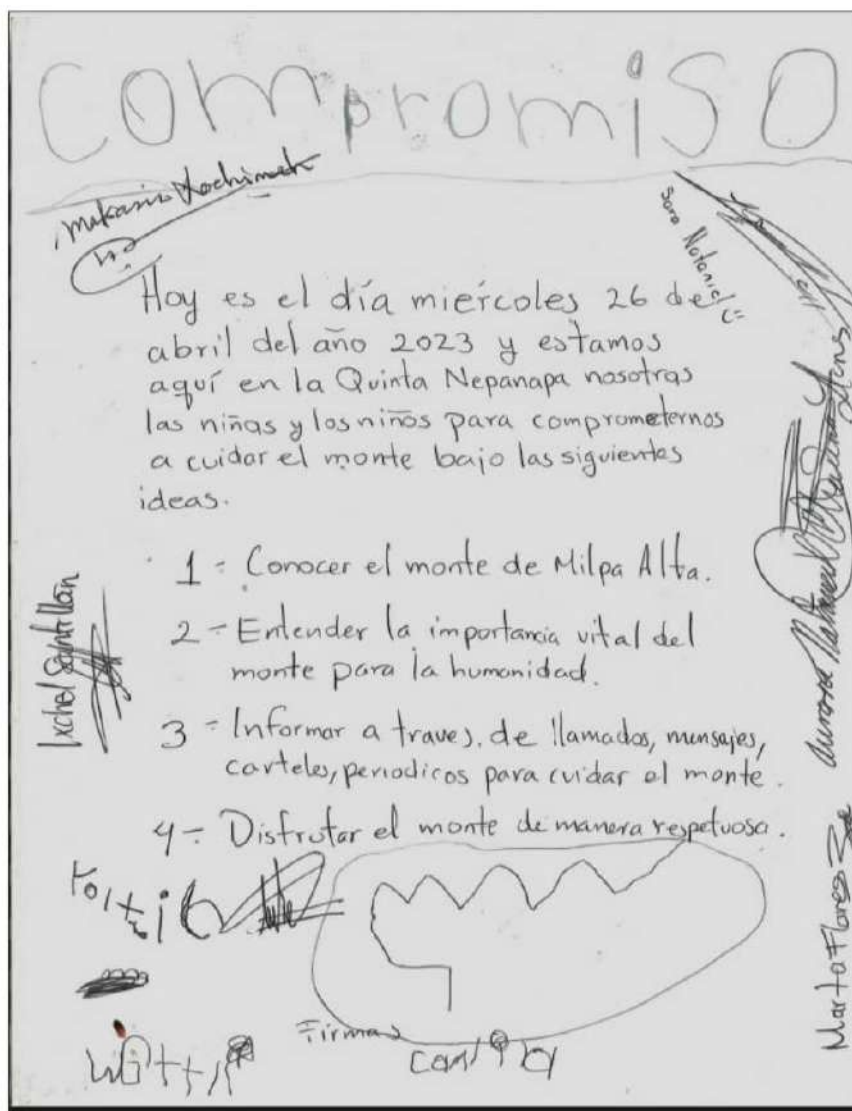 compromiSO
Sara Nataniel
Hoy es el día miércoles 26 de
abril del año 2023 y estamos
aquí en la Quinta Nepanapa nosotras
las niñas y los niños para comprometernos
a cuidar el monte bajo las siguientes
ideas.
1- Conocer el monte de Milpa Alta.
2- Entender la importancia vital del
monte para la humanidad.
3- Informar a traves, de llamados, mensajes,
carteles, periodicos para cuidar el monte.
4- Disfrutar el monte de manera respetuosa.
Ixchel Santillán
Marta Flores
Firmas